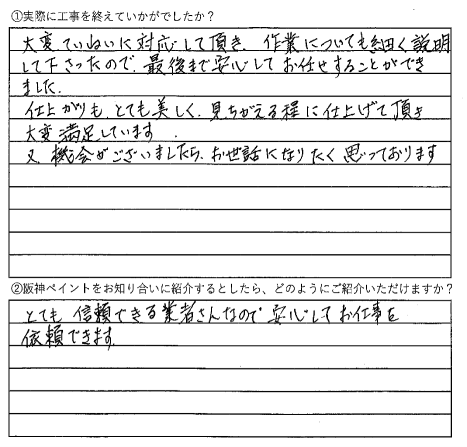 ①実際に工事を終えていかがでしたか？
大変ていねいに対応して頂き、作業についても細く説明
して下さったので、最後まで安心してお任せすることができ
ました.
仕上がりも、とても美しく、見ちがえる程に仕上げて頂き
大変満足しています.
又、機会がございましたら、お世話になりたく思っております
②阪神ペイントをお知り合いに紹介するとしたら、どのようにご紹介いただけますか？
とても信頼できる業者さんなので安心してお仕事を
依頼できます.